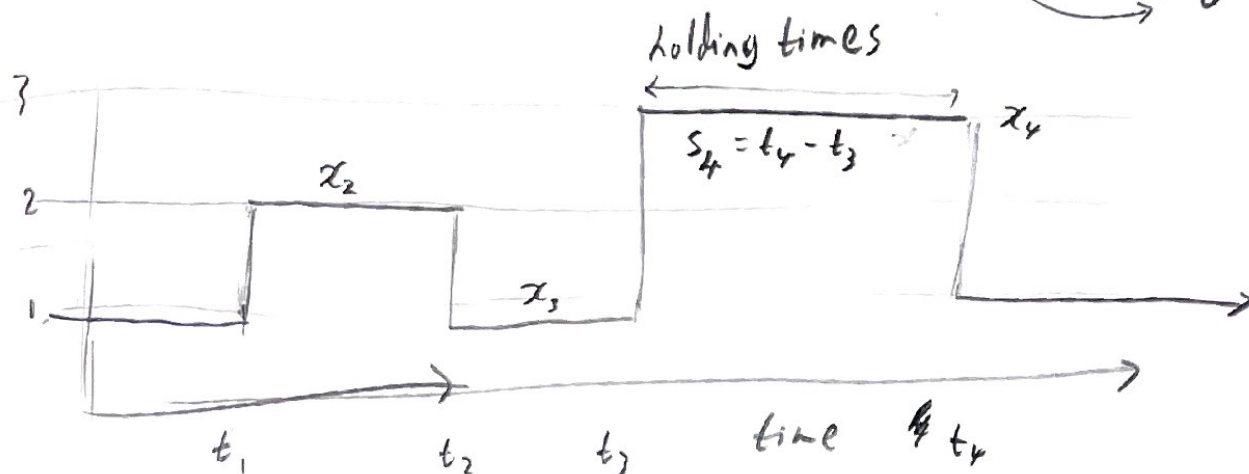 holding times
3
x₄
s₄ = t₄ - t₃
x₂
2
x₃
1
t₁ t₂ t₃ time t₄